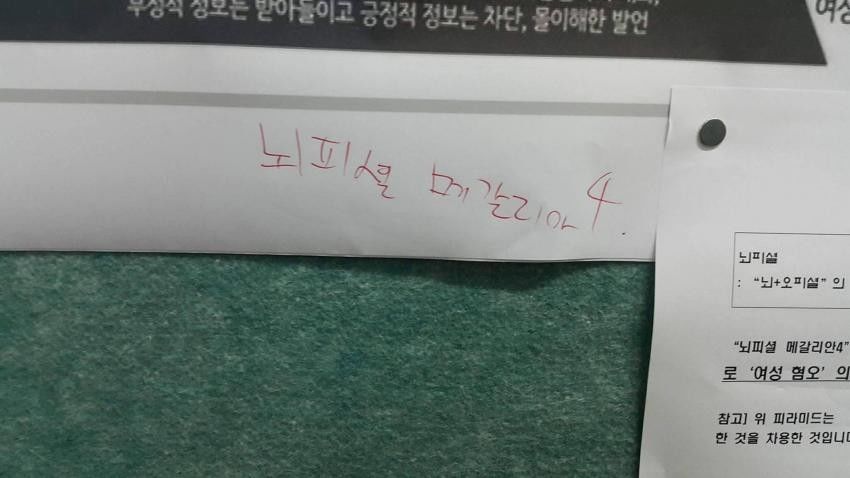 부정적 정보는 받아들이고 긍정적 정보는 차단, 몰이해한 발언
여성
뇌피셜 메갈리아4.
뇌피셜
: “뇌+오피셜” 의
“뇌피셜 메갈리안4”
로 ‘여성 혐오’ 의
참고] 위 피라미드는
한 것을 차용한 것입니다